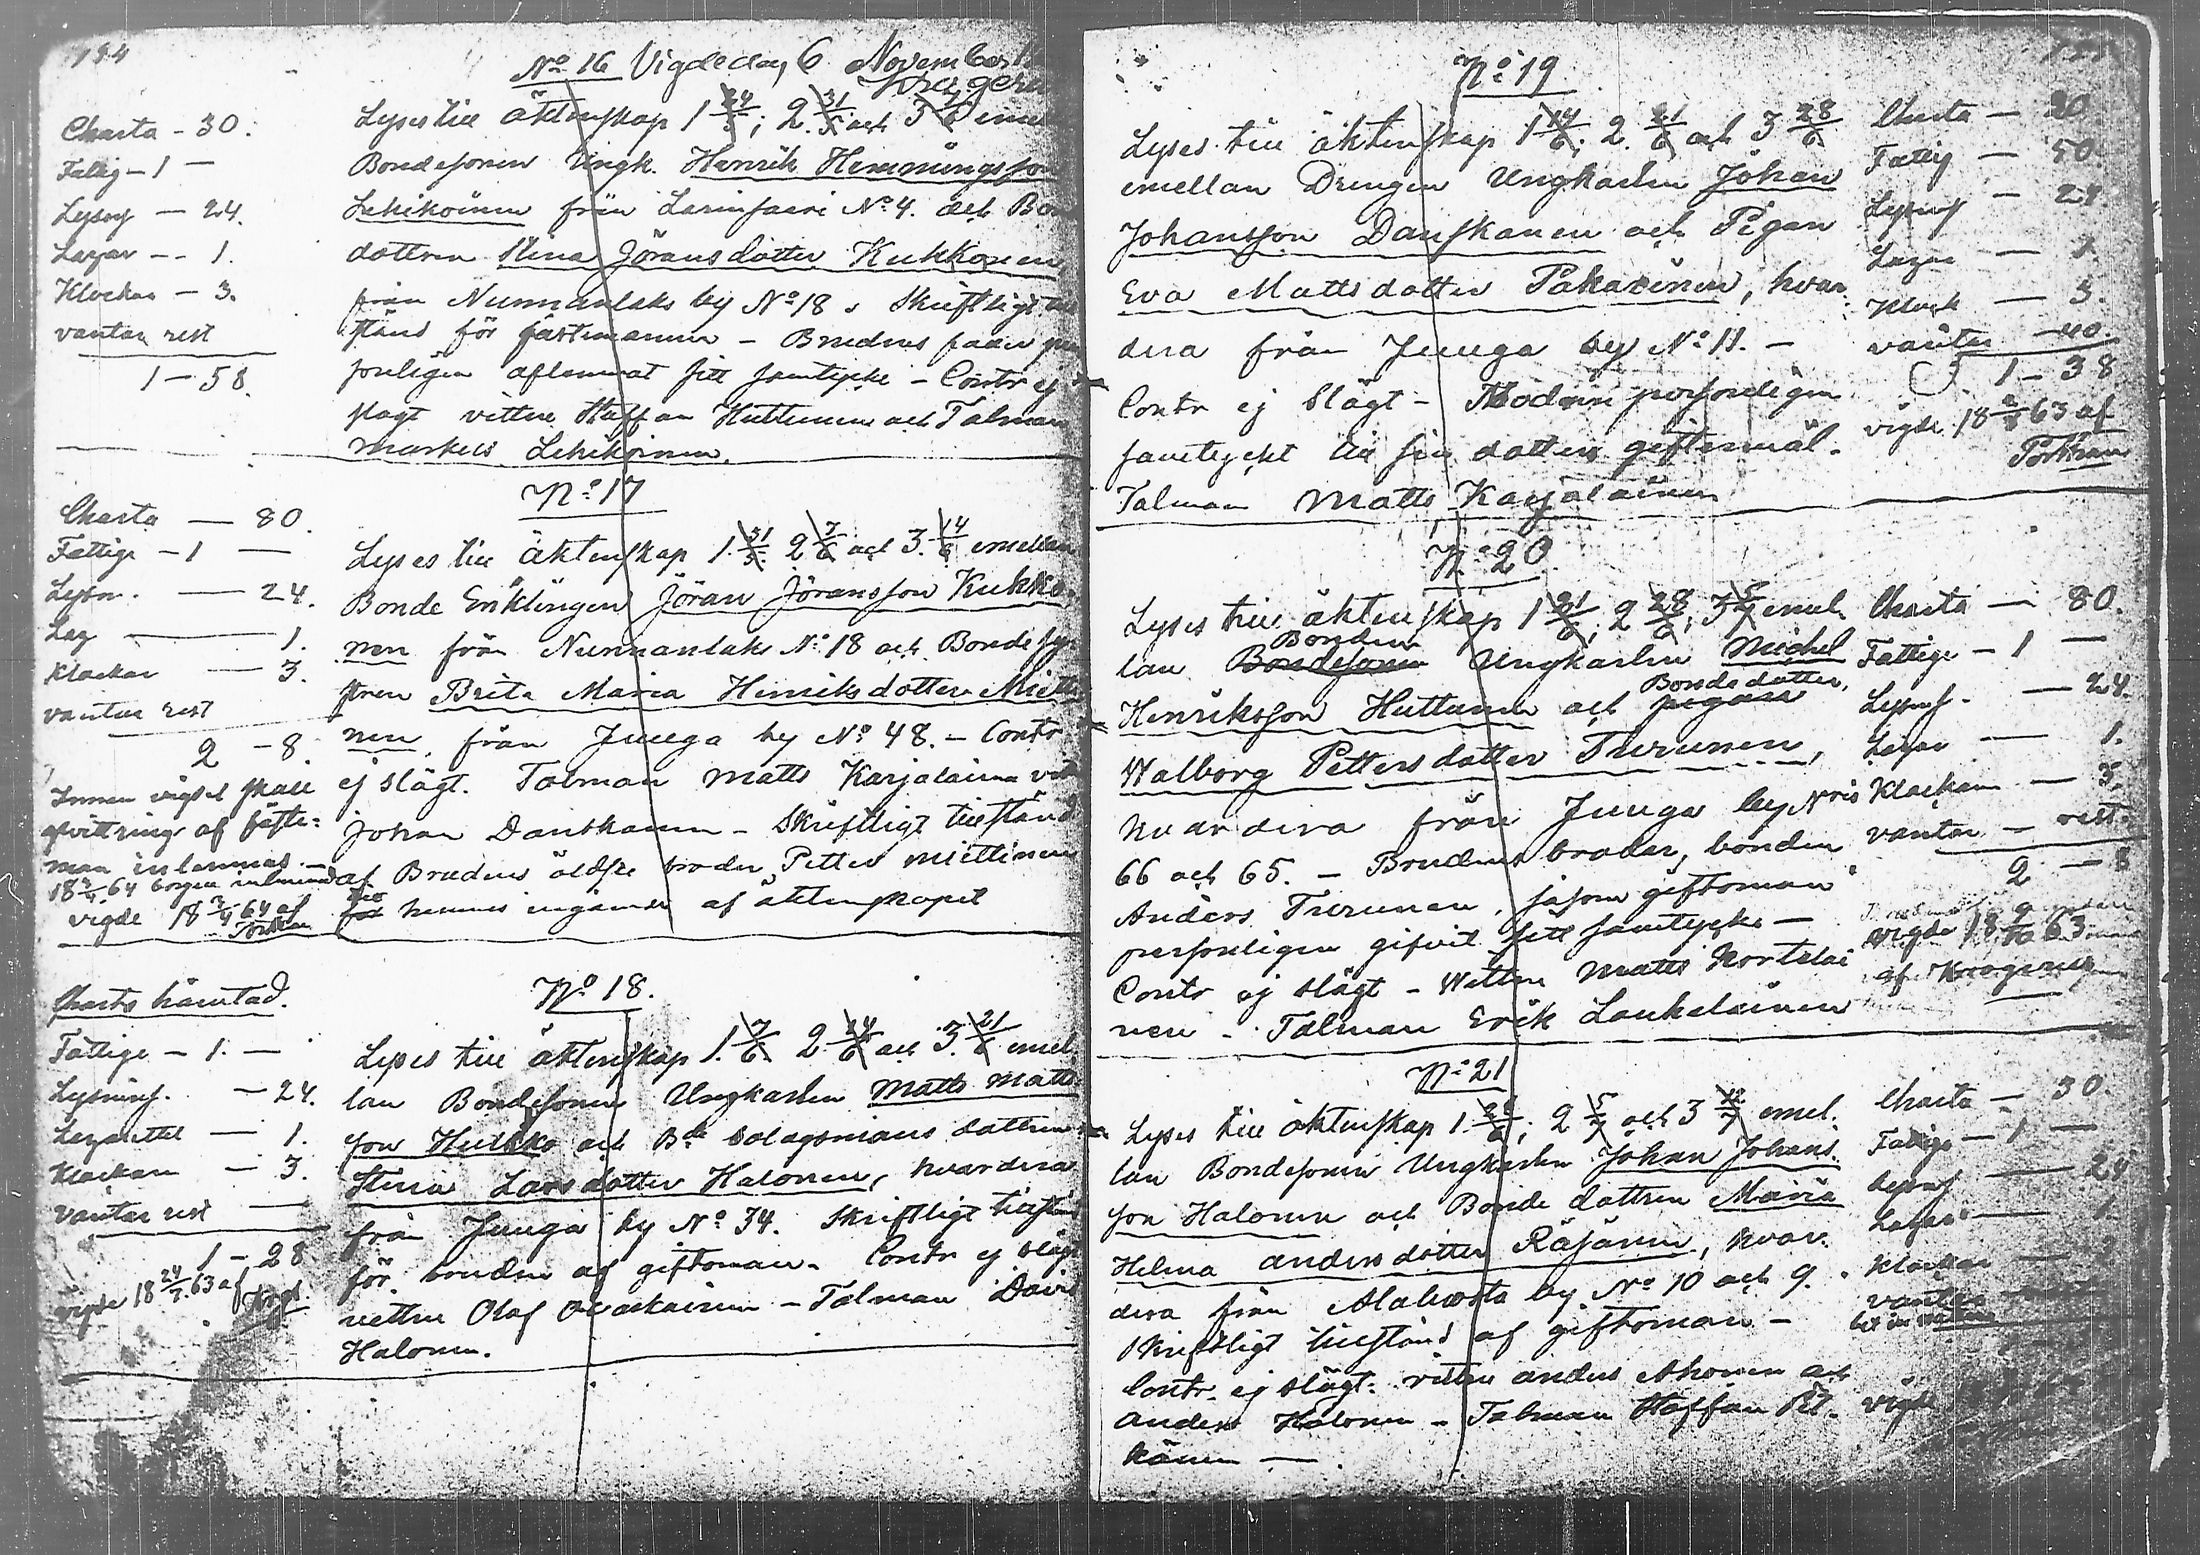 184
No 16 Vigde den 6 November
Charta - 30.
Fattig - 1 -
Lysng - 24.
Lazar - - 1.
Klockar - 3.
väntar rest
1 - 58.
Lyses till äktenskap 1 24/5; 2 31/5 och 3 7/6 emel
Bondesonen Ungk. Henrik Hemmingsson
Lehikoinen från Larinsaari No 4. och Bon
dottren Stina Jöransdotter Kukkonen
från Nunnanlaks by No 18. Skriftligt till
stånd för fästmannen - Brudens fader per
sonligen aflemnat sitt samtycke - Contr ej
slägt vittne Staffan Huttunen och Talman
Markus Lehikoinen.
No 17
Charta - 80.
Fattige - 1 -
Lysn. - 24.
Laz - 1.
Klockar - 3.
väntar rest
2 - 8.
Innan vigsel skall
qvittring af fäste-
man inlemnas. -
vigde 18 3/4 64 af
Lyses till äktenskap 1. 31/5. 2 7/6 och 3. 14/6 emellan
Bonde Enklingen Jöran Jöransson Kukko-
nen från Nunnanlaks No 18 och Bonde sy
stren Brita Maria Henriksdotter Mietti
nen, från Juuga by No 48. - Contr
ej slägt. Talman Matts Karjalainen vittn
Johan Danskanen - Skriftligt tillstånd
af Brudens äldste broder Petter Miettinen
till
för hennes ingående af äktenskapet
No 18.
Charta hämtad.
Fattige - 1. -
Lysning. - 24.
Lazarettet - 1.
Klockare - 3.
väntar rest -
1 - 28
vigde 18 24/7 63 af
Lyses till äktenskap 1. 7/6 2 14/6 och 3. 21/6 emel
lan Bondesonen Ungkarlen Matts Matts
son Hulkko och Bde bolagsmans dottren
Stina Larsdotter Halonen, hvardera
från Juuga by No 34. Skriftligt tillstånd
för bruden af giftoman. Contr ej slägt
vittne Olof - Talman David
Halonen.
No 19
Lyses till äktenskap 1 14/6; 2. 21/6 och 3 28/6
emellan Drengen Ungkarlen Johan
Johansson Danskanen och Pigan
Eva Mattsdotter Pakarinen, hvar-
dera från Juuga by No 11. -
Contr ej Slägt - Modren personligen
samtyckt till sin dotters giftermål.
Talman Matts Karjalainen
Charta - 30
Fattig - 50.
Lysning - 24
Lazar - 1.
Klock - 3.
väntar - 40
1 - 38
vigde 18 63 af
No 20
Lyses till äktenskap 1 21/6; 2 28/6; 3 5/7 emel
Bonden
lan Bondesonen Ungkarlen Michel
Bondedotter,
Henriksson Huttunen och pigan
Walborg Pettersdotter Turunen,
hvardera från Juuga by Nris
66 och 65. - Brudens broder, bonden
Anders Turunen, såsom giftoman
personligen gifvit sitt samtycke -
Contr ej slägt - Wittne Matts Kortelai
nen - Talman Erik Laukkalainen
Charta - 80.
Fattige - 1 -
Lysnf. - 24.
Lazar - 1.
Klockare - 3.
väntar - rest
2 - 8
vigde 18 63
No 21
Lyses till äktenskap 1. 28/6; 2 5/7 och 3 12/7 emel.
lan Bondesonen Ungkarlen Johan Johans
son Halonen och Bonde dottren Maria
Helena Andersdotter Räsänen, hvar-
dera från Alaluosta by No 10 och 9.
Skriftligt tillstånd af giftoman -
Contr. ej slägt. vittne Anders Ahonen och
Anders Halonen - Talman Staffan Pit-
känen -
Charta - 30.
Fattige - 1 -
Lysnf - 24
Lazar - 1.
Klockar
väntar
vigde